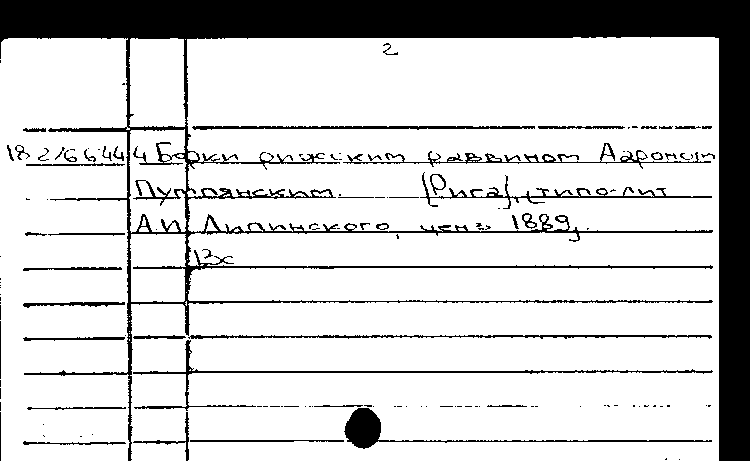 2
18 216644 4 Борки рижским раввином Аароном
Пумпянским. [Рига], типо-лит
А.И. Липинского, ценз 1889,
13с